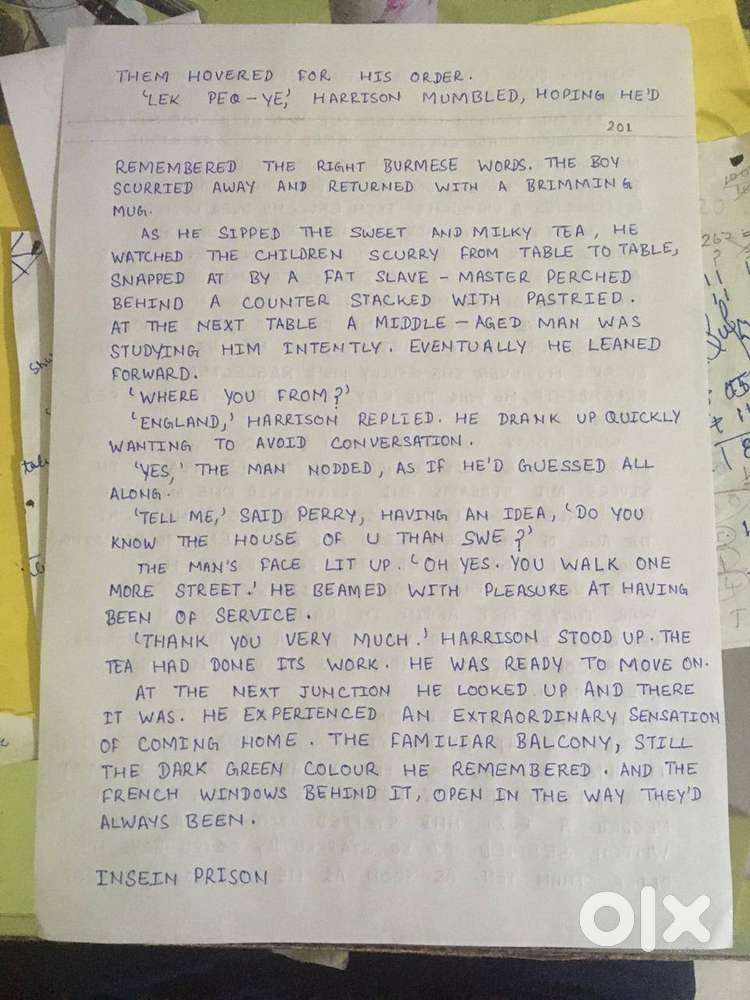 THEM HOVERED FOR HIS ORDER.
'LEK PEQ-YE,' HARRISON MUMBLED, HOPING HE'D
201
REMEMBERED THE RIGHT BURMESE WORDS. THE BOY
SCURRIED AWAY AND RETURNED WITH A BRIMMING
MUG.
AS HE SIPPED THE SWEET AND MILKY TEA, HE
WATCHED THE CHILDREN SCURRY FROM TABLE TO TABLE,
SNAPPED AT BY A FAT SLAVE-MASTER PERCHED
BEHIND A COUNTER STACKED WITH PASTRIED.
AT THE NEXT TABLE A MIDDLE-AGED MAN WAS
STUDYING HIM INTENTLY. EVENTUALLY HE LEANED
FORWARD.
'WHERE YOU FROM?'
'ENGLAND,' HARRISON REPLIED. HE DRANK UP QUICKLY
WANTING TO AVOID CONVERSATION.
'YES,' THE MAN NODDED, AS IF HE'D GUESSED ALL
ALONG.
'TELL ME,' SAID PERRY, HAVING AN IDEA, 'DO YOU
KNOW THE HOUSE OF U THAN SWE?'
THE MAN'S FACE LIT UP. 'OH YES. YOU WALK ONE
MORE STREET.' HE BEAMED WITH PLEASURE AT HAVING
BEEN OF SERVICE.
'THANK YOU VERY MUCH.' HARRISON STOOD UP. THE
TEA HAD DONE ITS WORK. HE WAS READY TO MOVE ON.
AT THE NEXT JUNCTION HE LOOKED UP AND THERE
IT WAS. HE EXPERIENCED AN EXTRAORDINARY SENSATION
OF COMING HOME. THE FAMILIAR BALCONY, STILL
THE DARK GREEN COLOUR HE REMEMBERED. AND THE
FRENCH WINDOWS BEHIND IT, OPEN IN THE WAY THEY'D
ALWAYS BEEN.
INSEIN PRISON
olx